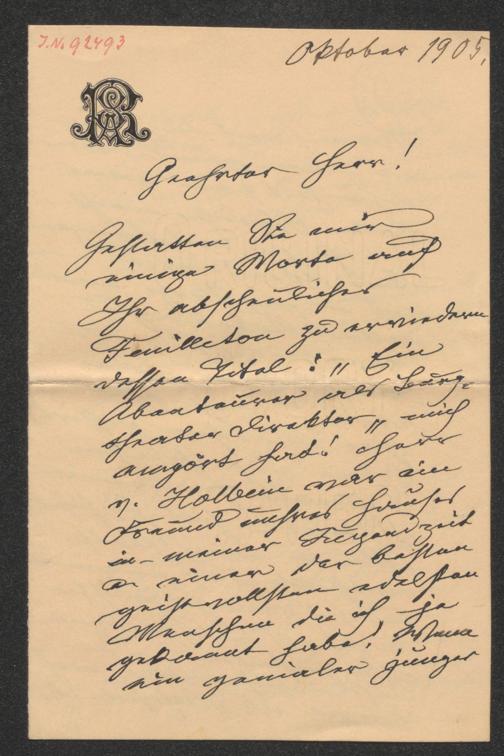 J.N. 92493
Oktober 1905.
Geehrter Herr!
Gestatten Sie mir
einige Worte auf
Ihr abscheuliches
Feuilleton zu erwiedern
dessen Titel: „Ein
Abenteurer als Burg-
theater Direktor„ mich
empört hat! Herr
v. Holbein war ein
Freund unsres Hauses
in meiner Jugendzeit
u. einer der besten
geistvollsten edelsten
Menschen die ich je
gekannt habe! Wenn
ein genialer junger